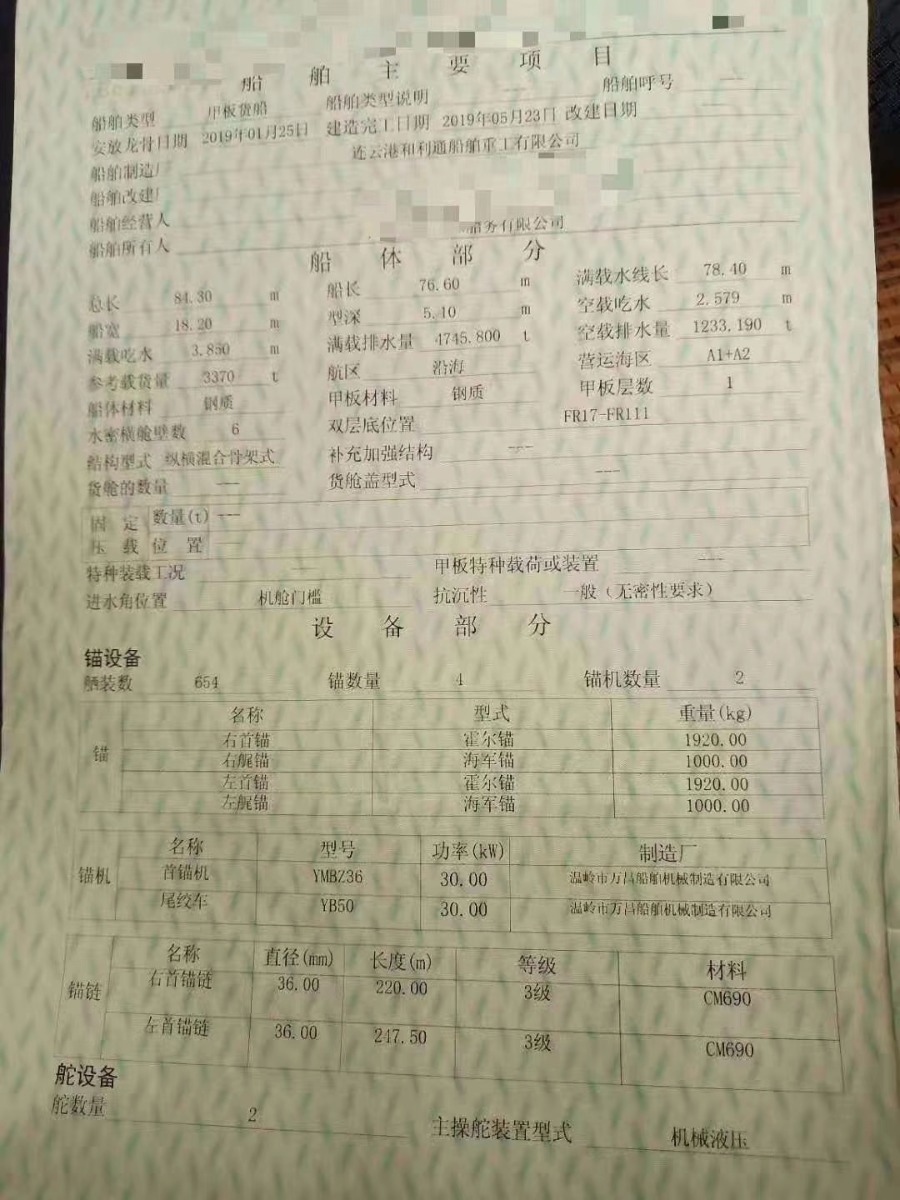 船舶主要项目
船舶类型 甲板货船 船舶类型说明 船舶呼号 ---
安放龙骨日期 2019年01月25日 建造完工日期 2019年05月23日 改建日期
船舶制造厂 连云港和利通船舶重工有限公司
船舶改建厂
船舶经营人
船舶所有人 船务有限公司
船体部分
总长 84.30 m 船长 76.60 m 满载水线长 78.40 m
船宽 18.20 m 型深 5.10 m 空载吃水 2.579 m
满载吃水 3.850 m 满载排水量 4745.800 t 空载排水量 1233.190 t
参考载货量 3370 t 航区 沿海 营运海区 A1+A2
船体材料 钢质 甲板材料 钢质 甲板层数 1
水密横舱壁数 6 双层底位置 FR17-FR111
结构型式 纵横混合骨架式 补充加强结构 ---
货舱的数量 --- 货舱盖型式 ---
固定 数量(t) ---
压载 位置
特种装载工况 甲板特种载荷或装置 ---
进水角位置 机舱门槛 抗沉性 一般（无密性要求）
设备部分
锚设备
舾装数 654 锚数量 4 锚机数量 2
锚 名称 型式 重量(kg)
右首锚 霍尔锚 1920.00
右艉锚 海军锚 1000.00
左首锚 霍尔锚 1920.00
左艉锚 海军锚 1000.00
锚机 名称 型号 功率(kW) 制造厂
首锚机 YMBZ36 30.00 温岭市万昌船舶机械制造有限公司
尾绞车 YB50 30.00 温岭市万昌船舶机械制造有限公司
锚链 名称 直径(mm) 长度(m) 等级 材料
右首锚链 36.00 220.00 3级 CM690
左首锚链 36.00 247.50 3级 CM690
舵设备
舵数量 2 主操舵装置型式 机械液压